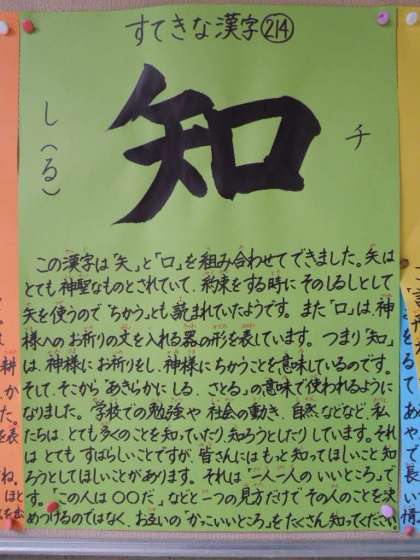 すてきな漢字214
知
し(る)
チ
この漢字は「矢」と「口」を組み合わせてできました。矢は
とても神聖なものとされていて、約束をする時にそのしるしとして
矢を使うので「ちかう」とも読まれていたようです。また「口」は、神
様へのお祈りの文を入れる器の形を表しています。つまり「知」
は、神様にお祈りをし、神様にちかうことを意味しているのです。
そして、そこから「あきらかにしる、さとる」の意味で使われるように
なりました。学校での勉強や社会の動き、自然などなど、私
たちは、とても多くのことを知っていたり、知ろうとしたりしています。それ
はとてもすばらしいことですが、皆さんにはもっと知ってほしいこと知
ろうとしてほしいことがあります。それは「一人一人のいいところ」で
す。「この人は〇〇だ。」などと一つの見方だけでその人のことを決
めつけるのではなく、お互いの「かっこいいところ」をたくさん知ってください。